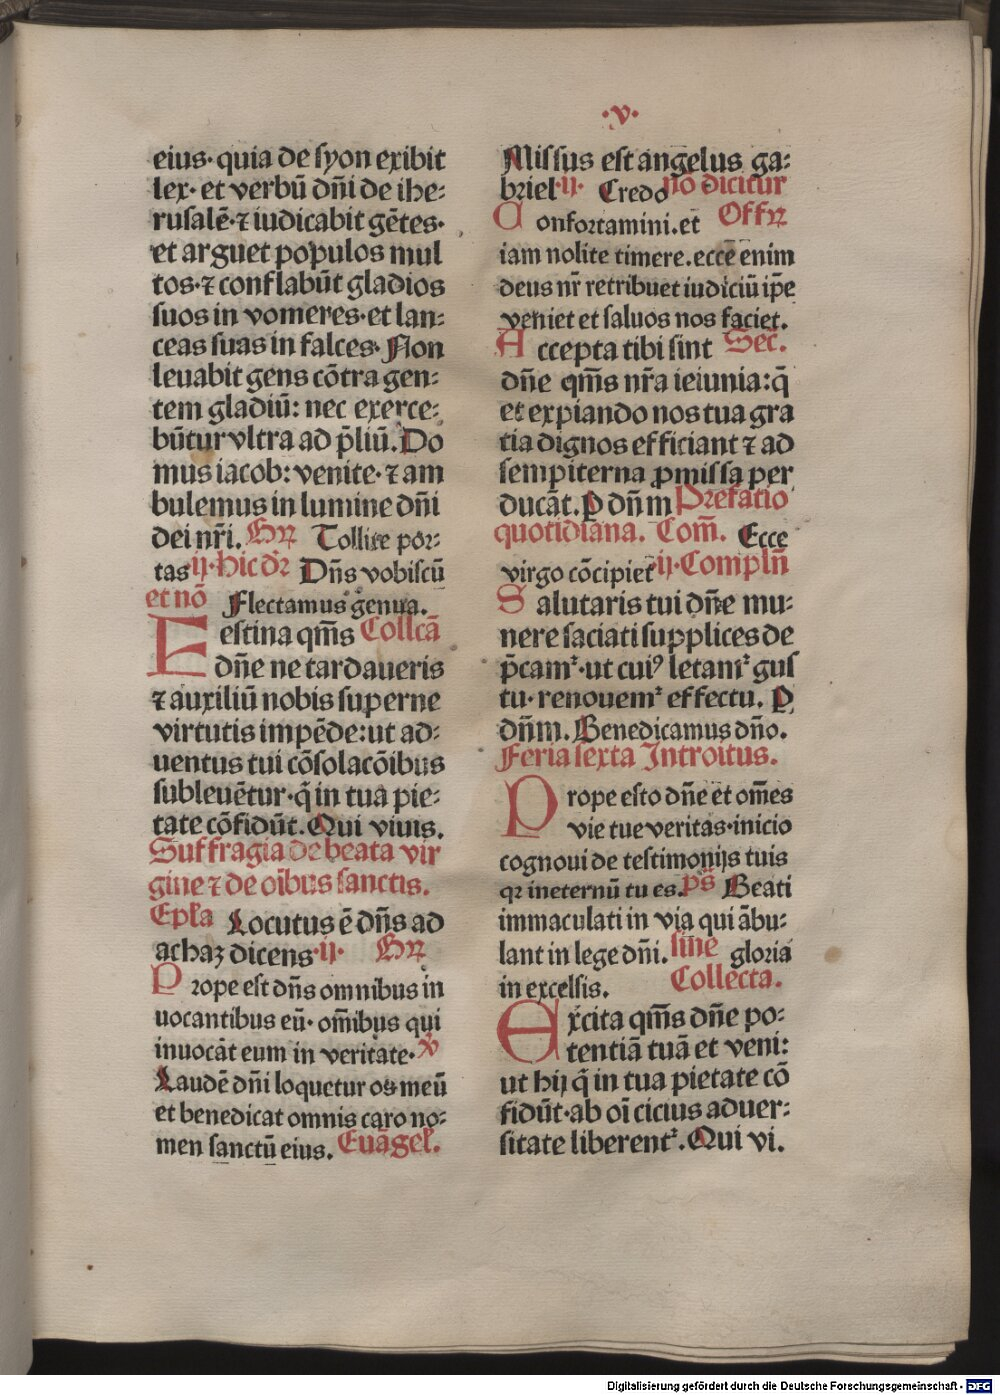 ·v·
eius· quia de syon exibit
lex· et verbū dn̄i de ihe⸗
rusalē·⁊ iudicabit gētes·
et arguet populos mul
tos·⁊ conflabūt gladios
suos in vomeres·et lan⸗
ceas suas in falces· Non
leuabit gens cōtra gen⸗
tem gladiū: nec exerce⸗
būtur vltra ad p̄liū. Do
mus iacob: venite·⁊ am
bulemus in lumine dn̄i
dei nr̄i. Gꝝ Tollite por⸗
tas ij·hic dr̄ Dn̄s vobiscū
et nō Flectamus genua.
Festina qm̄s Collcā
dn̄e ne tardaueris
⁊ auxiliū nobis superne
virtutis impēde:ut ad⸗
uentus tui cōsolacōibus
subleuētur·q̄ in tua pie⸗
tate cōfidūt. Qui viuis.
Suffragia de beata vir
gine ⁊ de oībus sanctis.
Epl̄a Locutus ē dn̄s ad
achaz dicens·ij· Gꝝ
Prope est dn̄s omnibus in
uocantibus eū· om̄ibus qui
inuocāt eum in veritate· v̄
Laudē dn̄i loquetur os meū
et benedicat omnis caro no⸗
men sanctū eius. Euāgel̄.
Missus est angelus ga⸗
briel·ij· Credo nō dicitur
Confortamini.et Offꝝ
iam nolite timere.ecce enim
deus nr̄ retribuet iudiciū ip̄e
veniet et saluos nos faciet.
Accepta tibi sint Sec̄.
dn̄e qm̄s nr̄a ieiunia:q̄
et expiando nos tua gra
tia dignos efficiant ⁊ ad
sempiterna ꝓmissa per
ducāt. P dn̄m Prefatio
quotidiana. Com̄. Ecce
virgo cōcipiet ij·Compln̄
Salutaris tui dn̄e mu⸗
nere saciati supplices de
p̄camr̄·ut cuiꝰ letamr̄ gus
tu·renouemr̄ effectu. P
dn̄m. Benedicamus dn̄o.
Feria sexta Introitus.
Prope esto dn̄e et om̄es
vie tue veritas·inicio
cognoui de testimonijs tuis
qꝛ ineternū tu es. ps̄ Beati
immaculati in via qui ābu⸗
lant in lege dn̄i. sine gloria
in excelsis. Collecta.
Excita qm̄s dn̄e po⸗
tentiā tuā et veni:
ut hij q̄ in tua pietate cō
fidūt·ab oī cicius aduer⸗
sitate liberentr̄. Qui vi.
Digitalisierung gefördert durch die Deutsche Forschungsgemeinschaft - DFG